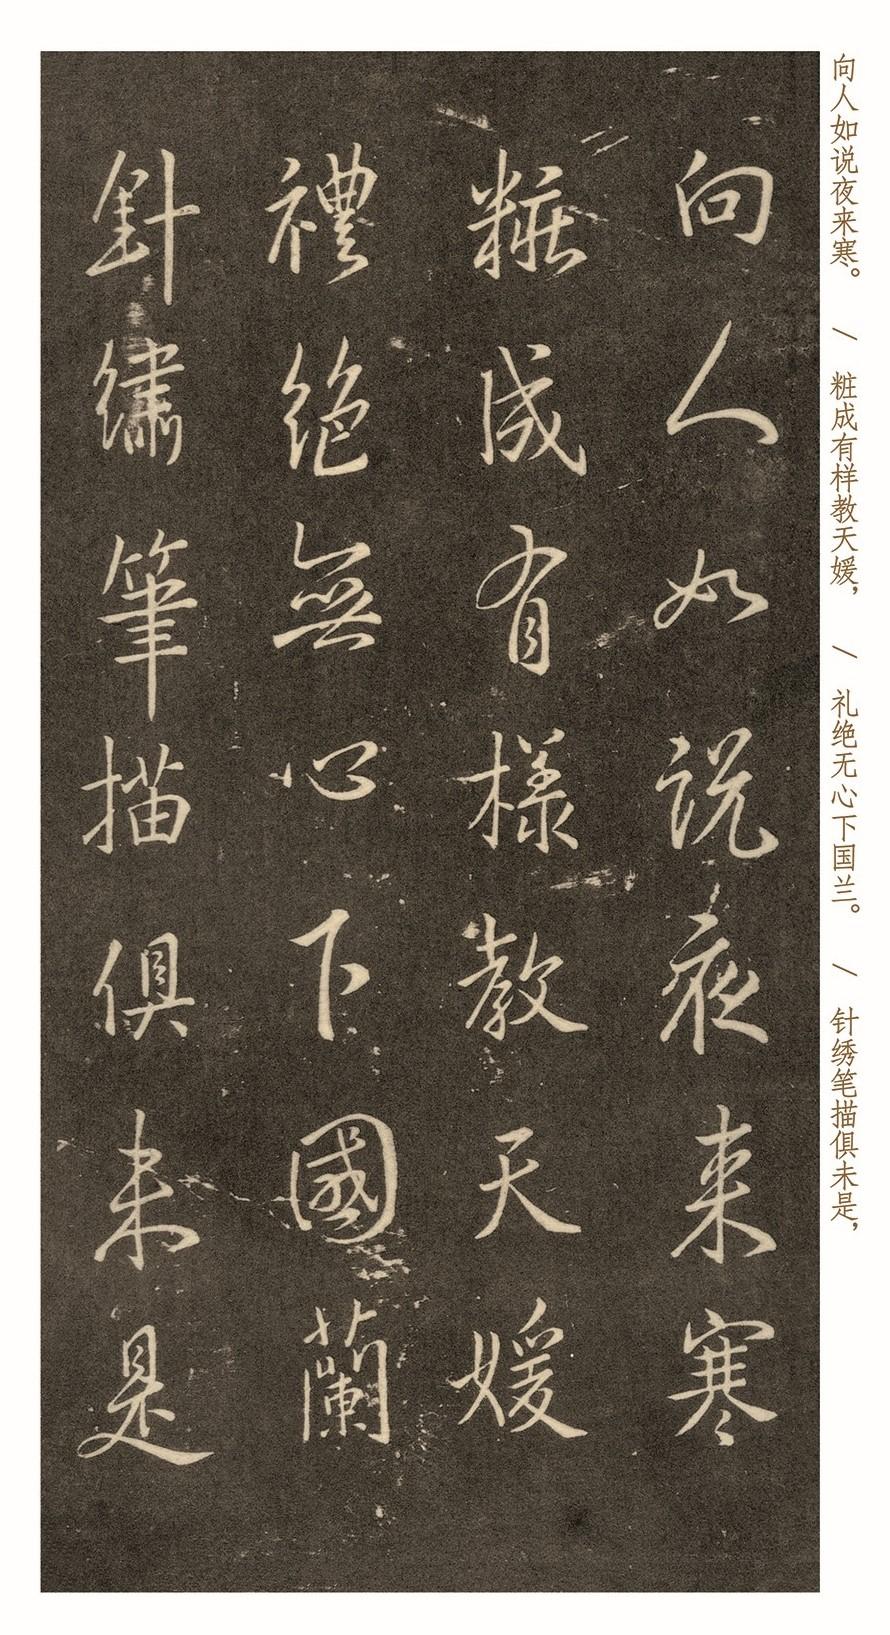 向人如说夜来寒。 / 粧成有样教天媛， / 礼绝无心下国兰。 / 针绣笔描俱未是，
向人如説夜来寒
粧成有樣教天媛
禮絶無心下國蘭
針繡筆描俱未是